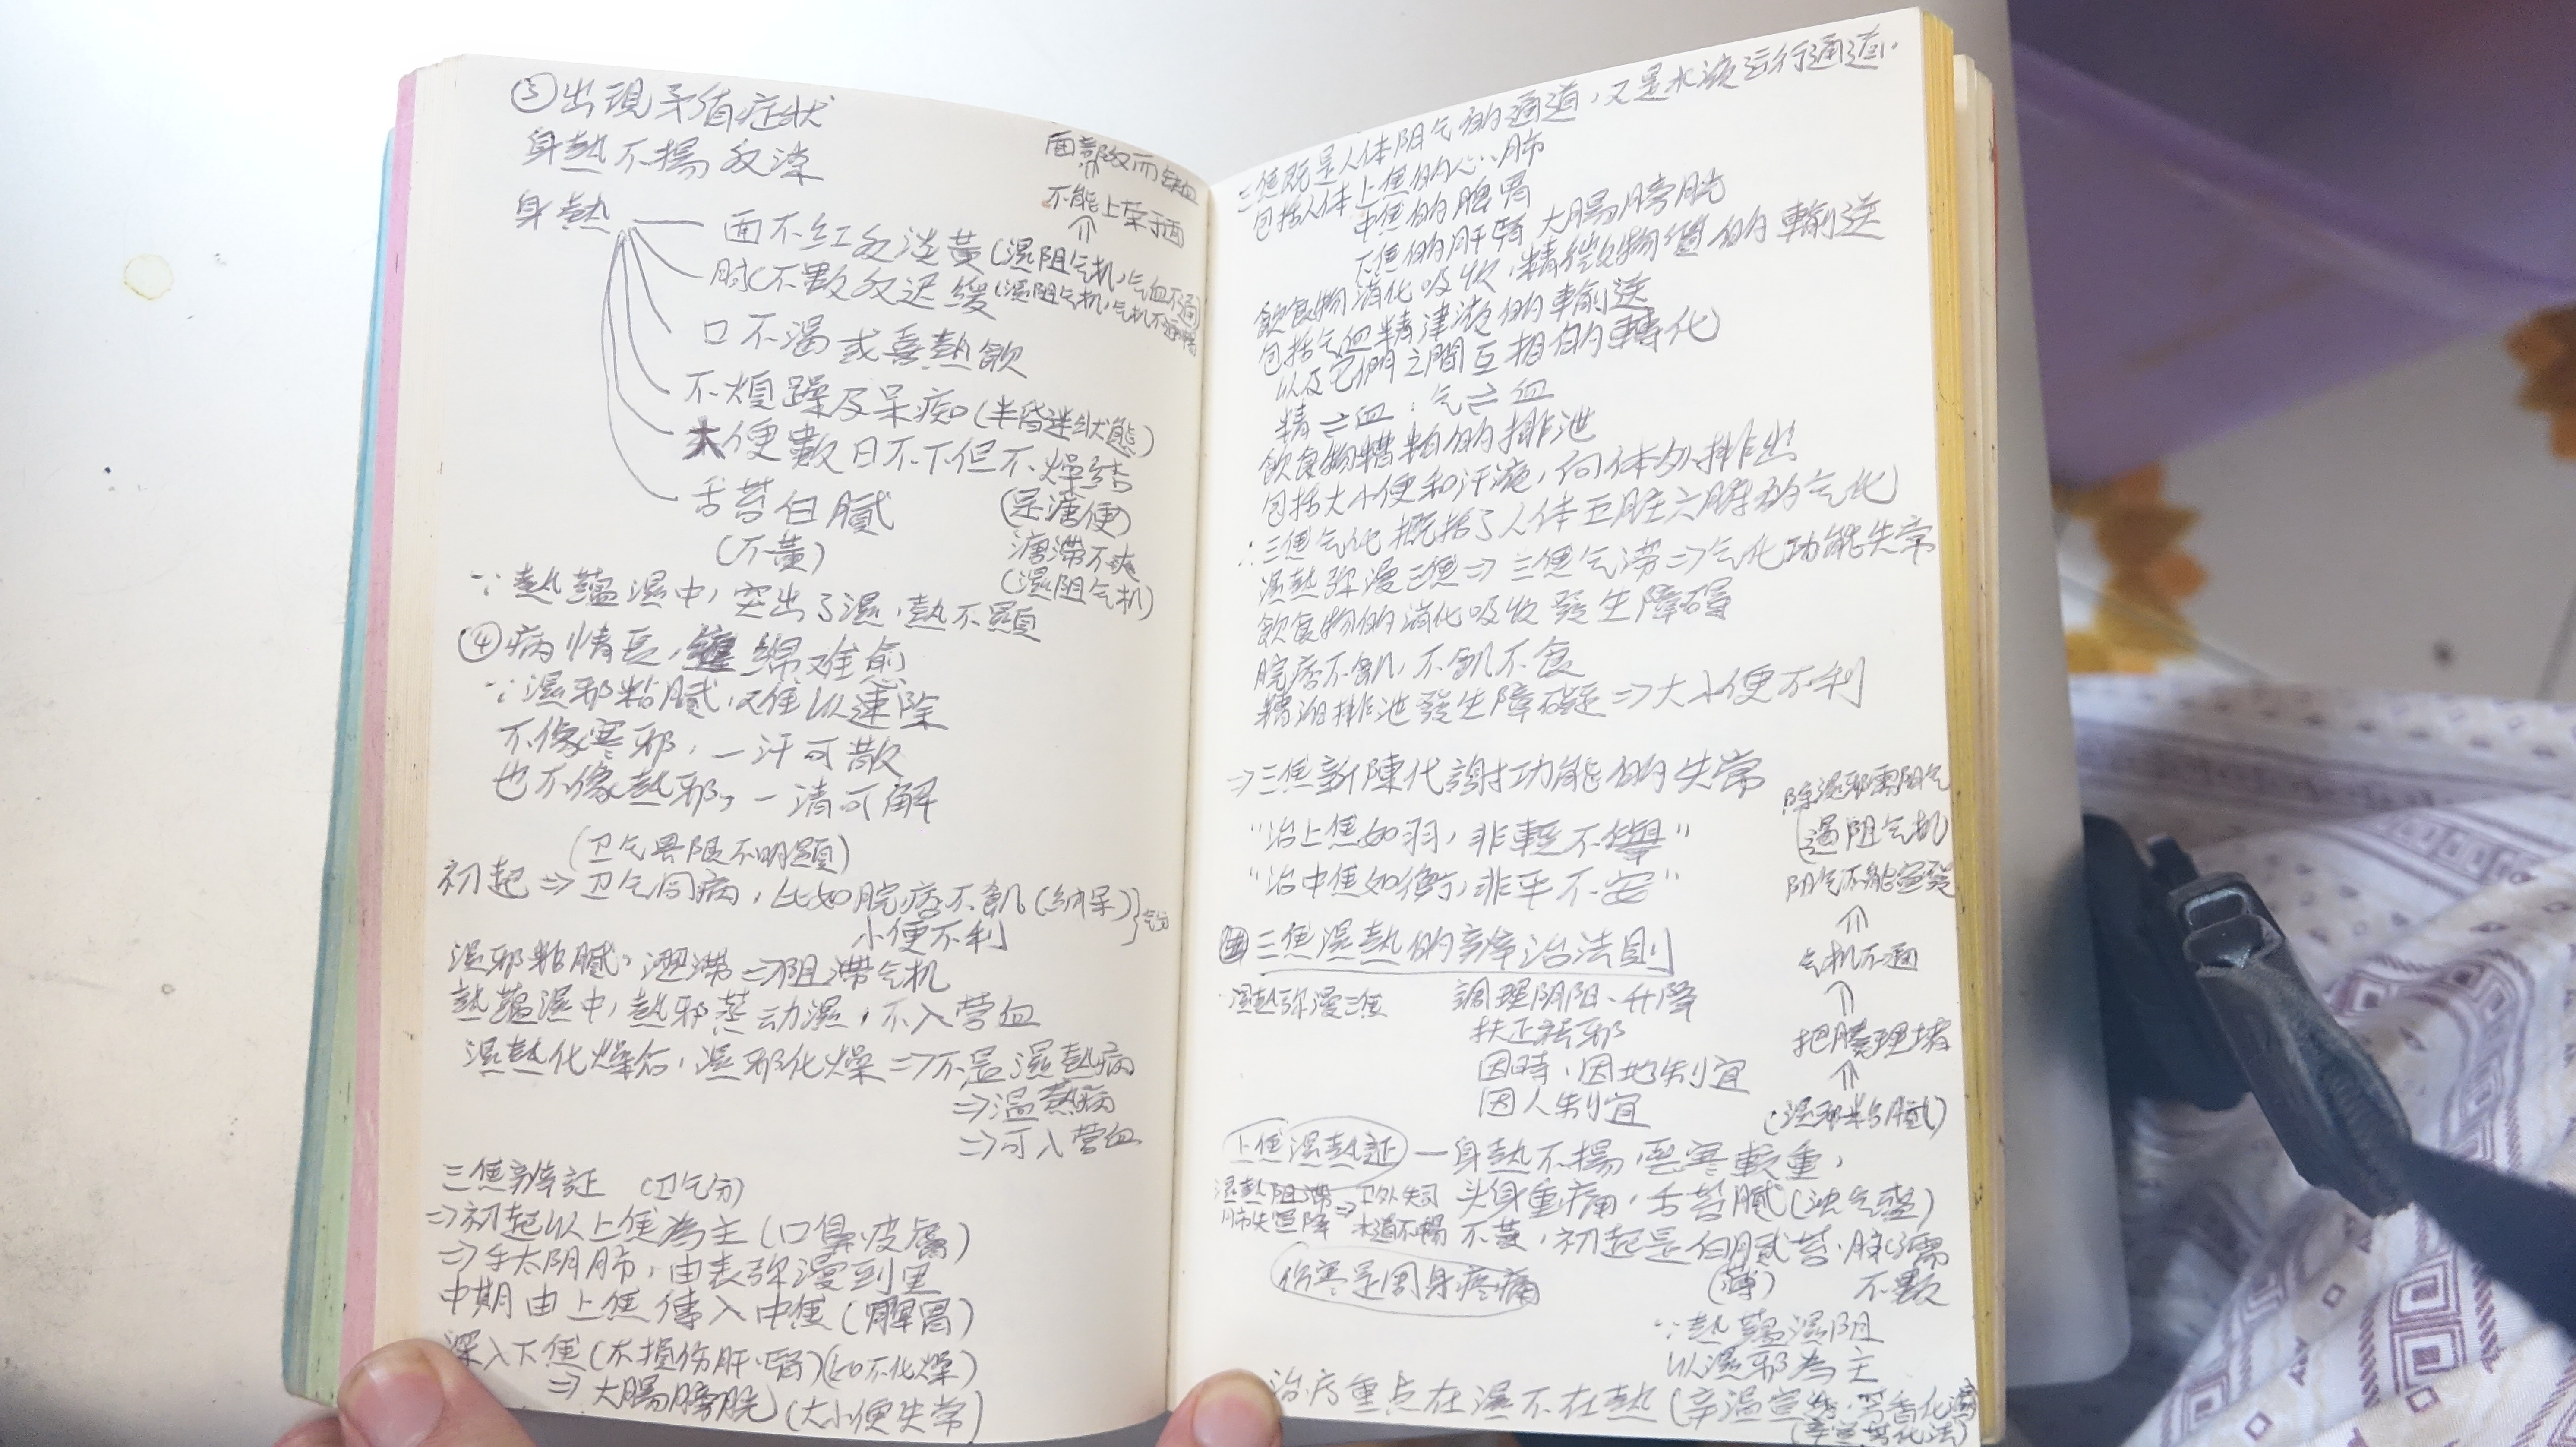 ③出現矛盾症狀
身熱不揚反涼
面部反而缺血
⇑
不能上荣于面
⇑
身熱
面不红反淡黃(濕阻气机,气血不通)
脉不數反迟緩(濕阻气机,气机不通暢)
口不渴或喜熱飲
不煩躁反呆痴(半昏迷狀態)
大便數日不下但不燥结
(是溏便)
溏滞不爽
(濕阻气机)
舌苔白膩
(不黃)
∵熱蘊濕中,突出了濕,熱不顯
④病情長,纏綿难愈
∵濕邪粘膩,难以速除
不像寒邪,一汗可散
也不像熱邪,一清可解
(卫气界限不明顯)
初起⇒卫气同病,比如脘痞不飢(納呆)}气分
小便不利
濕邪粘膩,澀滯⇒阻滯气机
熱蘊濕中,熱邪蒸动濕,不入营血
濕熱化燥后,濕邪化燥⇒不是濕熱病
⇒温熱病
⇒可入营血
三焦辨証 (卫气分)
⇒初起以上焦為主(口鼻.皮膚)
⇒手太阴肺,由表弥漫到里
中期由上焦傳入中焦(脾胃)
深入下焦(不損伤肝.腎)(如不化燥)
⇒大腸膀胱(大小便失常)
三焦既是人体阳气的通道,又是水液运行通道.
包括人体上焦的心.肺
中焦的脾胃
下焦的肝腎 大腸膀胱
飲食物消化吸收,精微物質的輸送
包括气血精津液的輸送
以及它們之間互相的轉化
精⇌血 : 气⇌血
飲食物糟粕的排泄
包括大小便和汗液,向体外排出
∴三焦气化概括了人体五脏六腑的气化
濕熱弥漫三焦⇒三焦气滞⇒气化功能失常
飲食物的消化吸收發生障碍
脘痞不飢,不飢不食
糟粕排泄發生障礙⇒大小便不利
⇒三焦新陳代謝功能的失常
"治上焦如羽,非輕不舉"
"治中焦如衡,非平不安"
四三焦濕熱的辨治法則
濕熱弥漫三焦 調理阴阳.升降
扶正祛邪
因時.因地制宜
因人制宜
除濕邪需阳气
(濕阻气机
阳气不能宣發
⇑
气机不通
⇑
把腠理堵
⇑
(濕邪粘膩)
上焦濕熱証—身熱不揚.惡寒較重,
濕熱阻滯⇒卫外失司 头身重痛,舌苔膩(浊气盛)
肺失宣降 水道不暢 不黃,初起是白膩苔.脉濡
(薄) 不數
伤寒是周身疼痛
∵熱蘊濕阻
以濕邪為主
治疗重点在濕不在熱(辛温宣,芳香化濕
(辛宣芳化法)